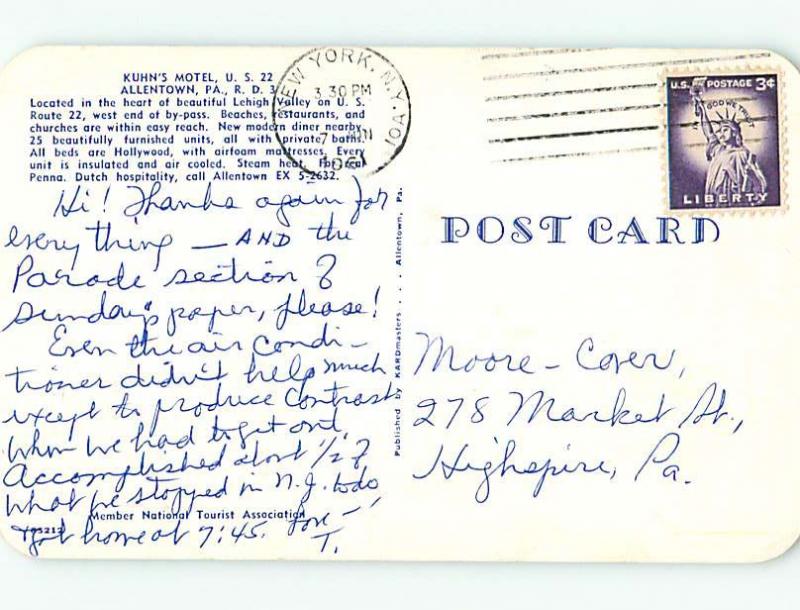 KUHN'S MOTEL, U. S. 22
ALLENTOWN, PA., R. D. 3
Located in the heart of beautiful Lehigh Valley on U. S.
Route 22, west end of by-pass. Beaches, restaurants, and
churches are within easy reach. New modern diner nearby.
25 beautifully furnished units, all with private baths.
All beds are Hollywood, with airfoam mattresses. Every
unit is insulated and air cooled. Steam heat. For real
Penna. Dutch hospitality, call Allentown EX 5-2632.
Hi! Thanks again for
everything — AND the
Parade section of
Sunday's paper, please!
Even the air condi-
tioner didn't help much
except to produce contrast
when we had to get out.
Accomplished about 1/2 of
what we stopped in N.J. to do,
Member National Tourist Association
got home at 7:45. Love —
T.
Published by KARDmasters . . . Allentown, Pa.
NEW YORK, N.Y.
3 30 PM
1961
U.S. POSTAGE 3¢
IN GOD WE TRUST
LIBERTY
POST CARD
Moore - Cover,
278 Market St.,
Highspire, Pa.